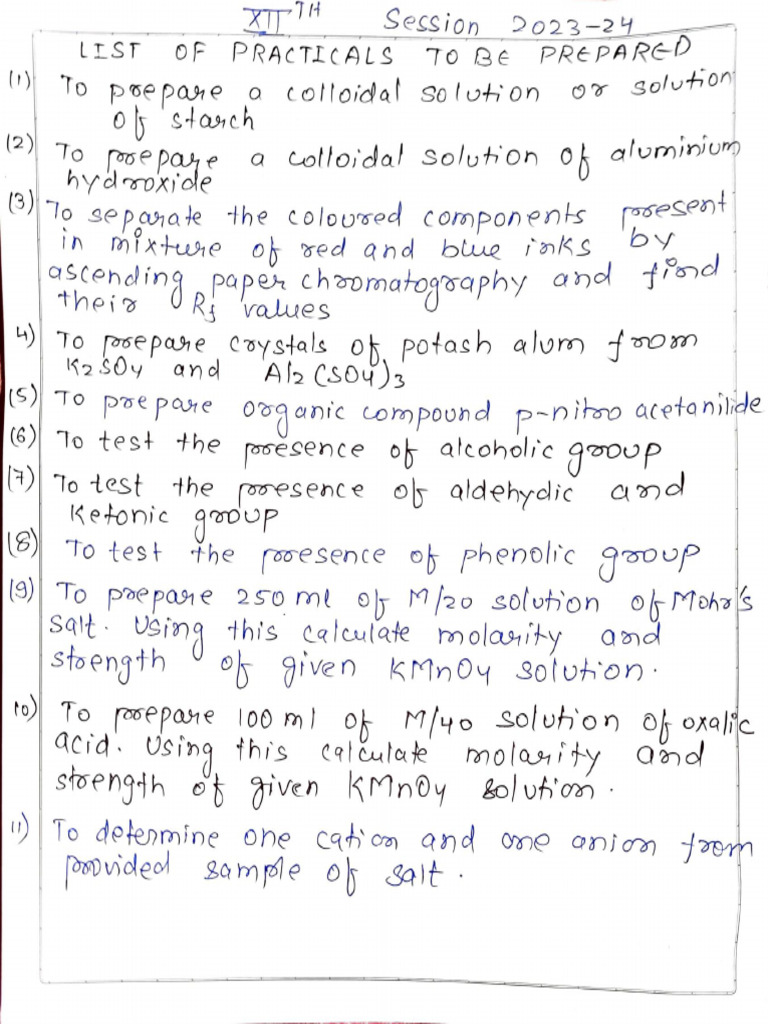 XII TH Session 2023-24
LIST OF PRACTICALS TO BE PREPARED
(1) To prepare a colloidal solution or solution
of starch
(2) To prepare a colloidal solution of aluminium
hydroxide
(3) To separate the coloured components present
in mixture of red and blue inks by
ascending paper chromatography and find
their Rf values
4) To prepare crystals of potash alum from
K2SO4 and Al2(SO4)3
(5) To prepare organic compound p-nitro acetanilide
(6) To test the presence of alcoholic group
(7) To test the presence of aldehydic and
Ketonic group
(8) To test the presence of phenolic group
(9) To prepare 250 ml of M/20 solution of Mohr's
salt. Using this calculate molarity and
strength of given KMnO4 solution.
10) To prepare 100 ml of M/40 solution of oxalic
acid. Using this calculate molarity and
strength of given KMnO4 solution.
11) To determine one cation and one anion from
provided sample of salt.